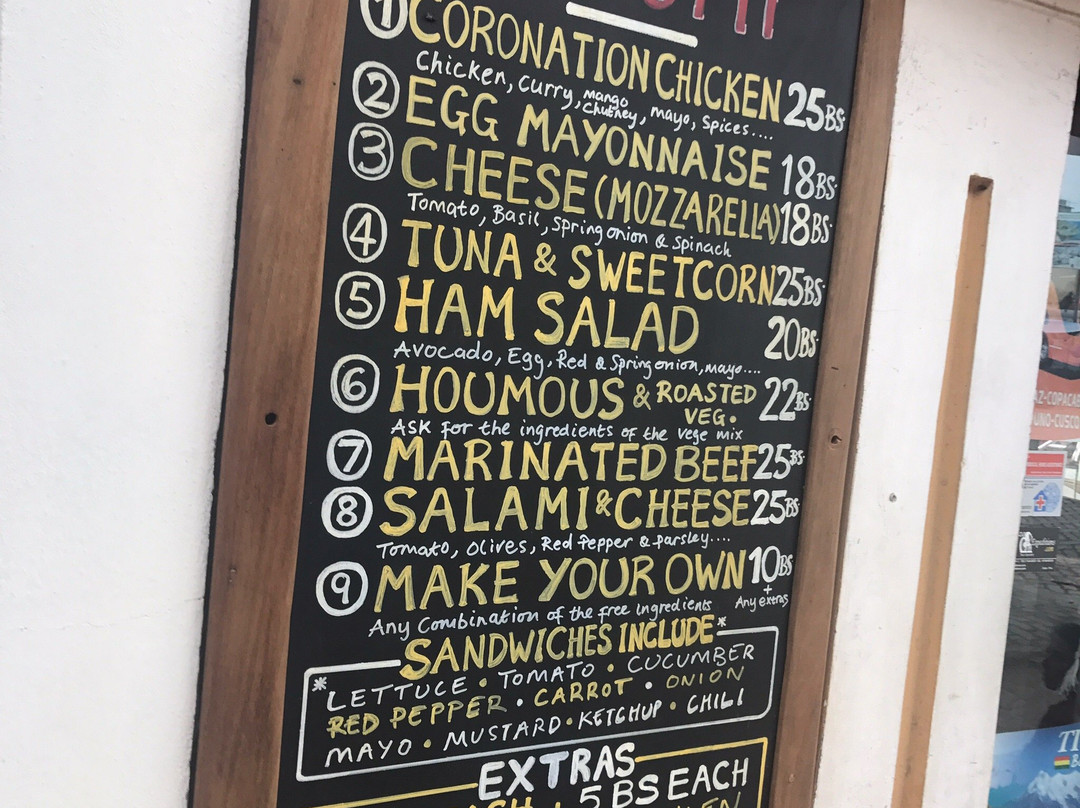 1 CORONATION CHICKEN 25BS.
Chicken, Curry, mango Chutney, mayo, Spices....
2 EGG MAYONNAISE 18BS.
3 CHEESE (MOZZARELLA) 18BS.
Tomato, Basil, Spring onion & Spinach
4 TUNA & SWEETCORN 25BS.
5 HAM SALAD 20BS.
Avocado, Egg, Red & Spring onion, mayo....
6 HOUMOUS & ROASTED VEG. 22BS.
ASK for the ingredients of the vege mix
7 MARINATED BEEF 25BS.
8 SALAMI & CHEESE 25BS.
Tomato, Olives, Red Pepper & parsley....
9 MAKE YOUR OWN 10BS
+
Any Combination of the free Ingredients Any extras
SANDWICHES INCLUDE*
*LETTUCE • TOMATO • CUCUMBER
RED PEPPER • CARROT • ONION
MAYO • MUSTARD • KETCHUP • CHILI
EXTRAS
5 BS EACH